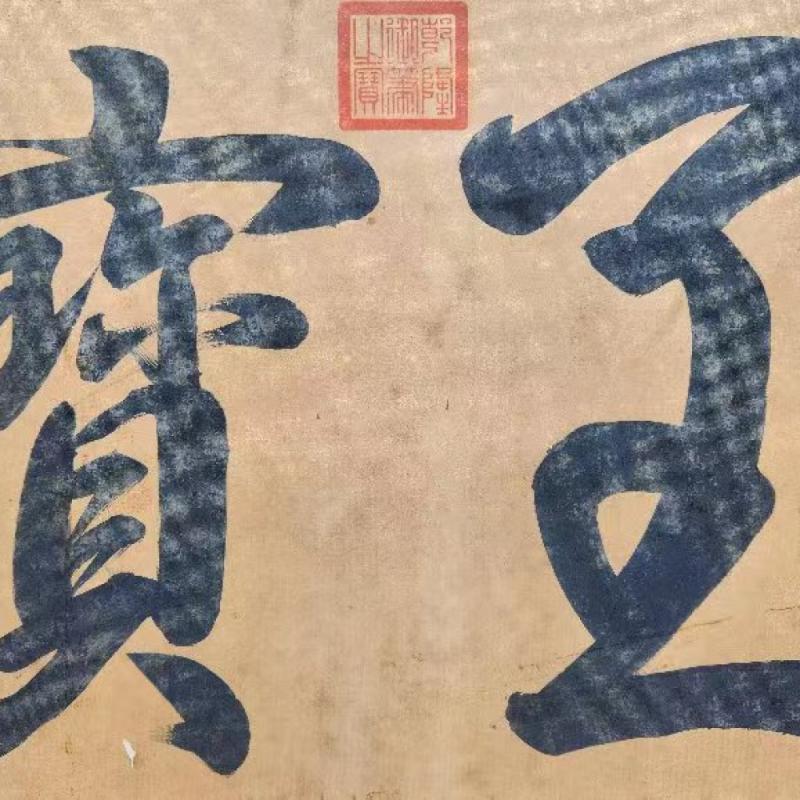 乾隆御筆之寶
寶